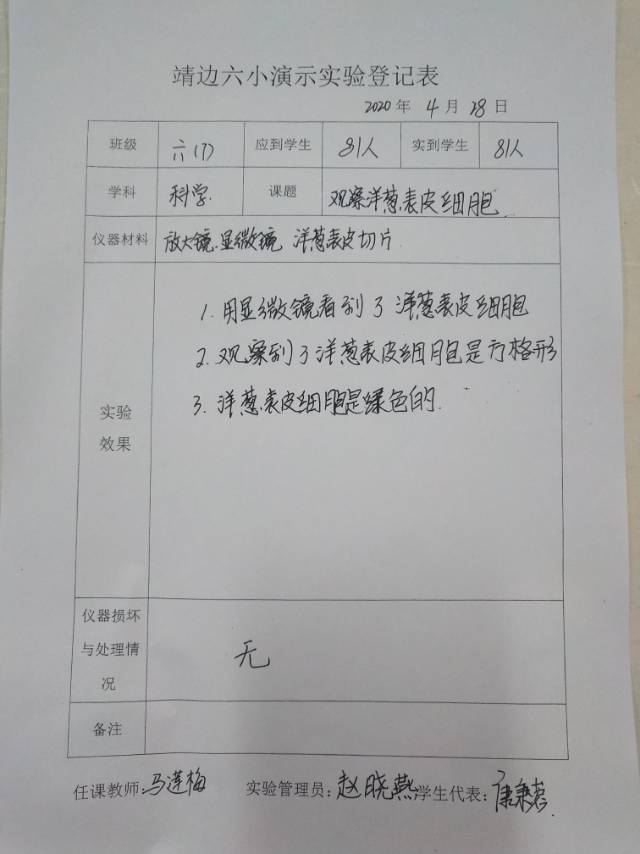 靖边六小演示实验登记表
2020 年 4 月 28 日
班级 六(7) 应到学生 81人 实到学生 81人
学科 科学 课题 观察洋葱表皮细胞
仪器材料 放大镜.显微镜 洋葱表皮切片
1. 用显微镜看到了洋葱表皮细胞
2. 观察到了洋葱表皮细胞是方格形
3. 洋葱表皮细胞是绿色的.
实验
效果
仪器损坏
与处理情
况
无
备注
任课教师:马莲梅 实验管理员:赵晓燕 学生代表:康